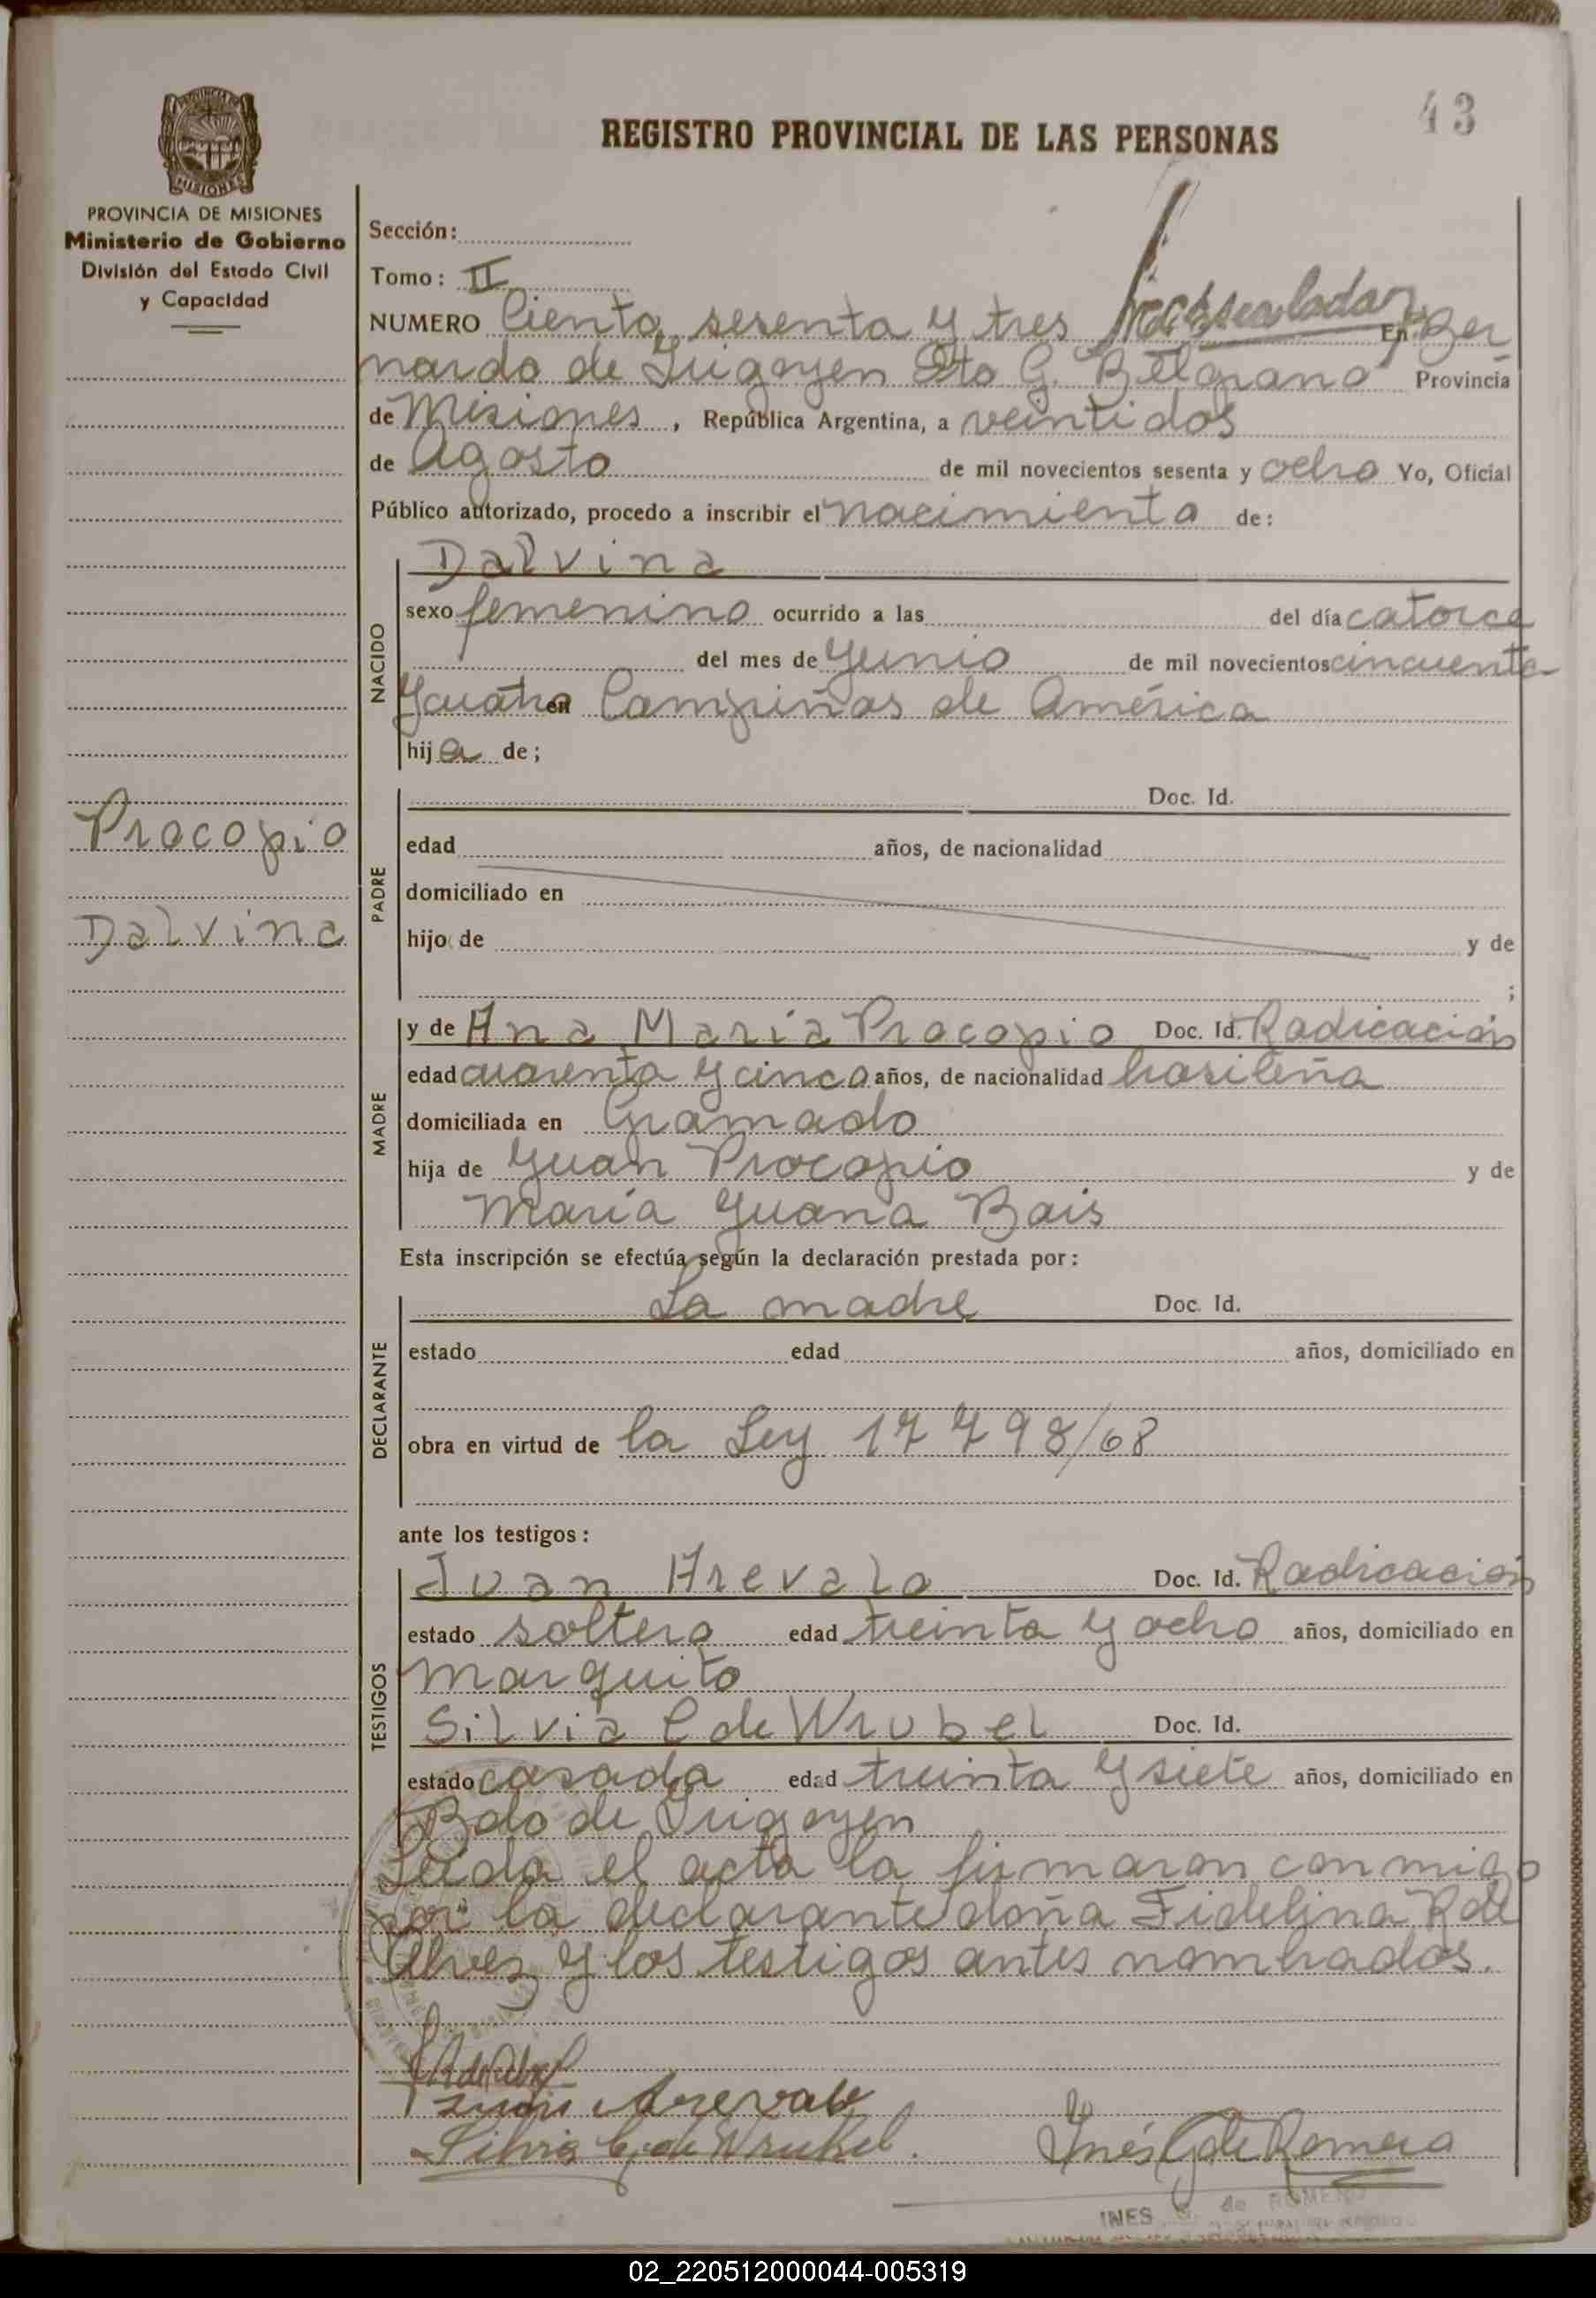 43
REGISTRO PROVINCIAL DE LAS PERSONAS
MISIONES
PROVINCIA DE MISIONES
Ministerio de Gobierno
División del Estado Civil
y Capacidad
Sección:
Tomo: II
NUMERO Ciento sesenta y tres En Ber
nardo de Irigoyen Dto G. Belgrano Provincia
de Misiones, República Argentina, a veintidos
de Agosto de mil novecientos sesenta y ocho Yo, Oficial
Público autorizado, procedo a inscribir el nacimiento de:
NACIDO
Dalvina
sexo femenino ocurrido a las del día catorce
del mes de Junio de mil novecientos cincuenta
y cuatro en Campiñas de América
hija de;
Procopio
Dalvina
PADRE
Doc. Id.
edad años, de nacionalidad
domiciliado en
hijo de y de
;
MADRE
y de Ana Maria Procopio Doc. Id. Radicación
edad cuarenta y cinco años, de nacionalidad brasileña
domiciliada en Gramado
hija de Juan Procopio y de
María Juana Bais
Esta inscripción se efectúa según la declaración prestada por:
DECLARANTE
La madre Doc. Id.
estado edad años, domiciliado en
obra en virtud de la Ley 17798/68
ante los testigos:
TESTIGOS
Juan Arevalo Doc. Id. Radicación
estado soltero edad treinta y ocho años, domiciliado en
Marquito
Silvia C de Wrubel Doc. Id.
estado casada edad treinta y siete años, domiciliado en
Bdo de Irigoyen
Leida el acta la firmaron conmigo
por la declarante doña Fidelina R de
Alvez y los testigos antes nombrados.
Juan Arevalo
Silvia C. de Wrubel.
Inés G de Romero
INES G. de ROMERO
02_220512000044-005319